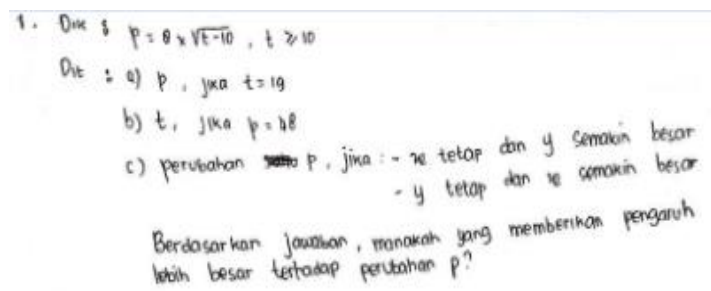 1. Dik : p = 8 x √t-10 , t ≥ 10
Dit : a) p , jika t = 19
b) t , jika p = 48
c) perubahan p , jika : - x tetap dan y semakin besar
- y tetap dan x semakin besar
Berdasarkan jawaban , manakah yang memberikan pengaruh
lebih besar terhadap perubahan p?